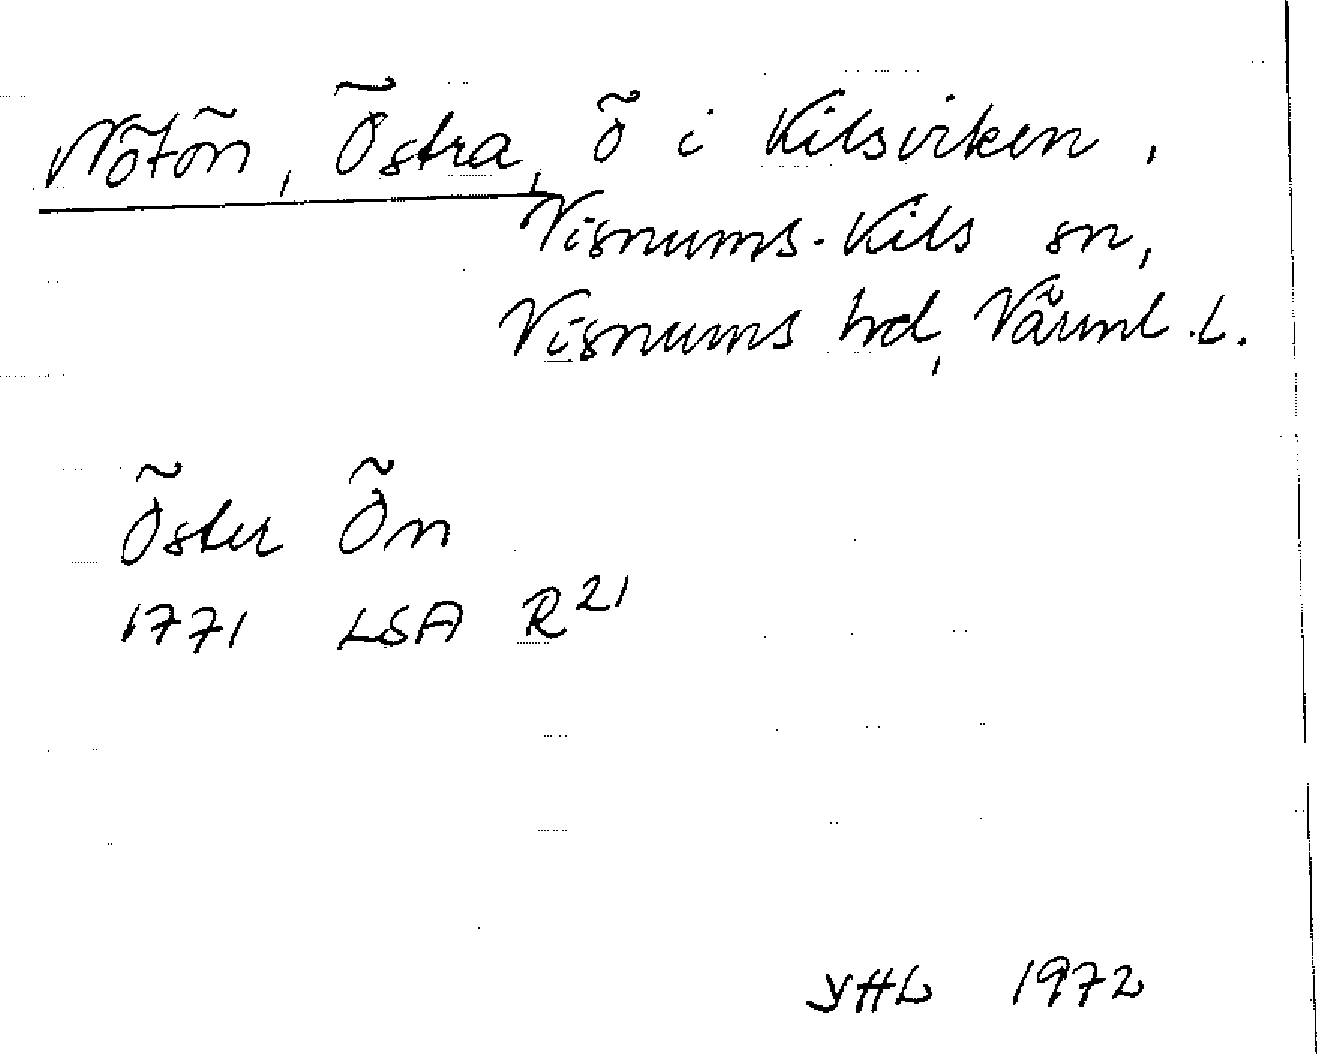 Nötön, Östra, ö i Kilsviken,
Visnums-Kils sn,
Visnums hd, Värml. l.
Öster Ön
1771 LSA R21
YHL 1972